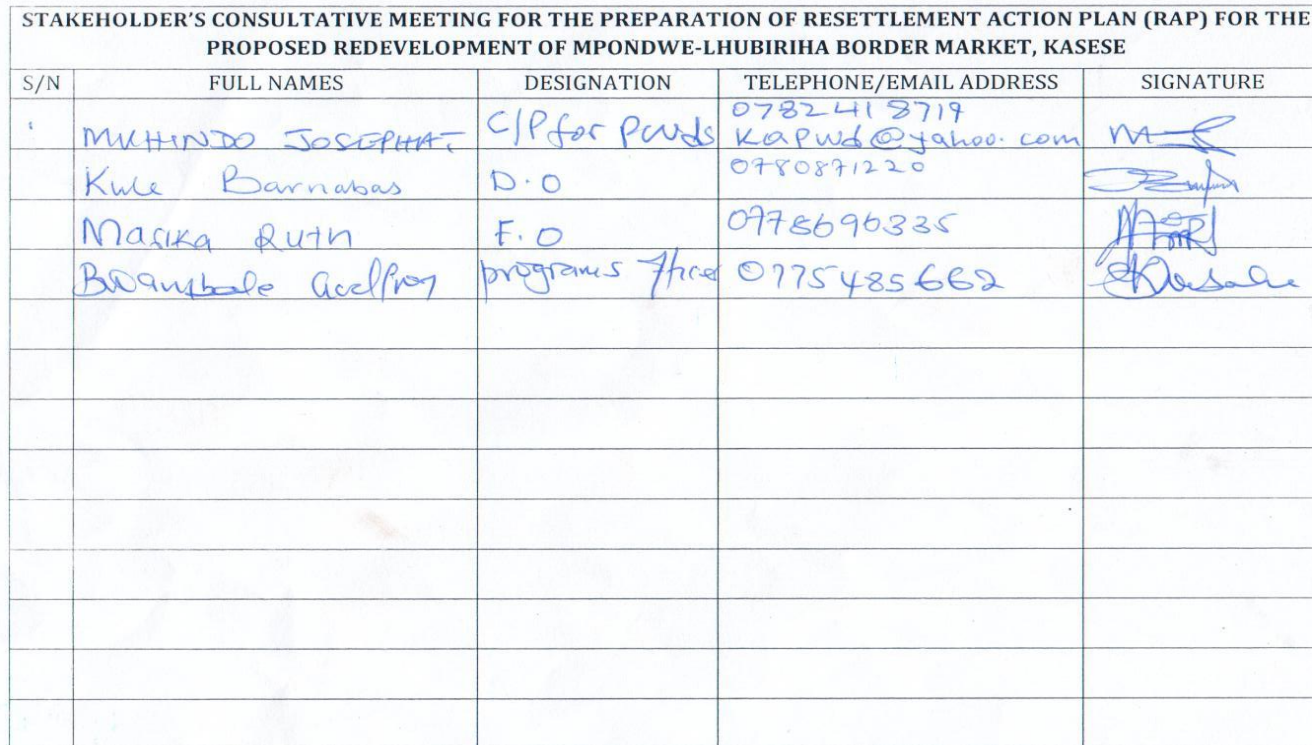 STAKEHOLDER'S CONSULTATIVE MEETING FOR THE PREPARATION OF RESETTLEMENT ACTION PLAN (RAP) FOR THE
PROPOSED REDEVELOPMENT OF MPONDWE-LHUBIRIHA BORDER MARKET, KASESE
S/N FULL NAMES DESIGNATION TELEPHONE/EMAIL ADDRESS SIGNATURE
0782418719
MUHINDO JOSEPHAT. C/P for pwds kapwd@yahoo.com
Kule Barnabas D.O 0780871220
Masika Ruth F.O 0778696335
programs 0775485662